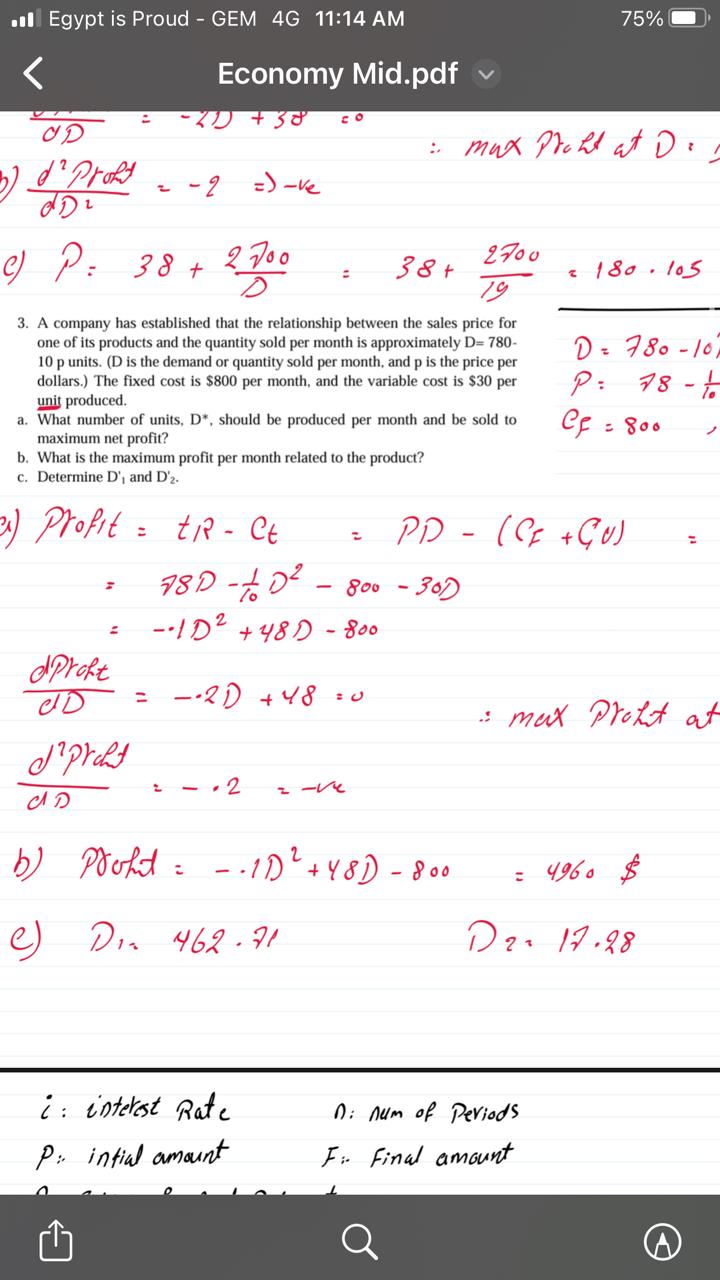 Egypt is Proud - GEM 4G 11:14 AM 75%
Economy Mid.pdf
dD = -2D + 38 = 0
∴ max Profit at D =
b) d²Profit/dD² = -2 => -ve
c) P = 38 + 2700/D = 38 + 2700/19 = 180.105
3. A company has established that the relationship between the sales price for
one of its products and the quantity sold per month is approximately D= 780-
10 p units. (D is the demand or quantity sold per month, and p is the price per
dollars.) The fixed cost is $800 per month, and the variable cost is $30 per
unit produced.
a. What number of units, D*, should be produced per month and be sold to
maximum net profit?
b. What is the maximum profit per month related to the product?
c. Determine D'₁ and D'₂.
D = 780 - 10
P = 78 - 1/10
CF = 800 ,
a) Profit = tR - Ct = PD - (CF + CV) =
= 78D - 1/10 D² - 800 - 30D
= -.1D² + 48D - 800
dProfit/dD = -.2D + 48 = 0
∴ max Profit at
d²Profit/dD = -.2 = -ve
b) Profit = -.1D² + 48D - 800 = 4960 $
c) D1= 462.71 D2= 17.28
i: interest Rate n: num of Periods
P: intial amount F: Final amount